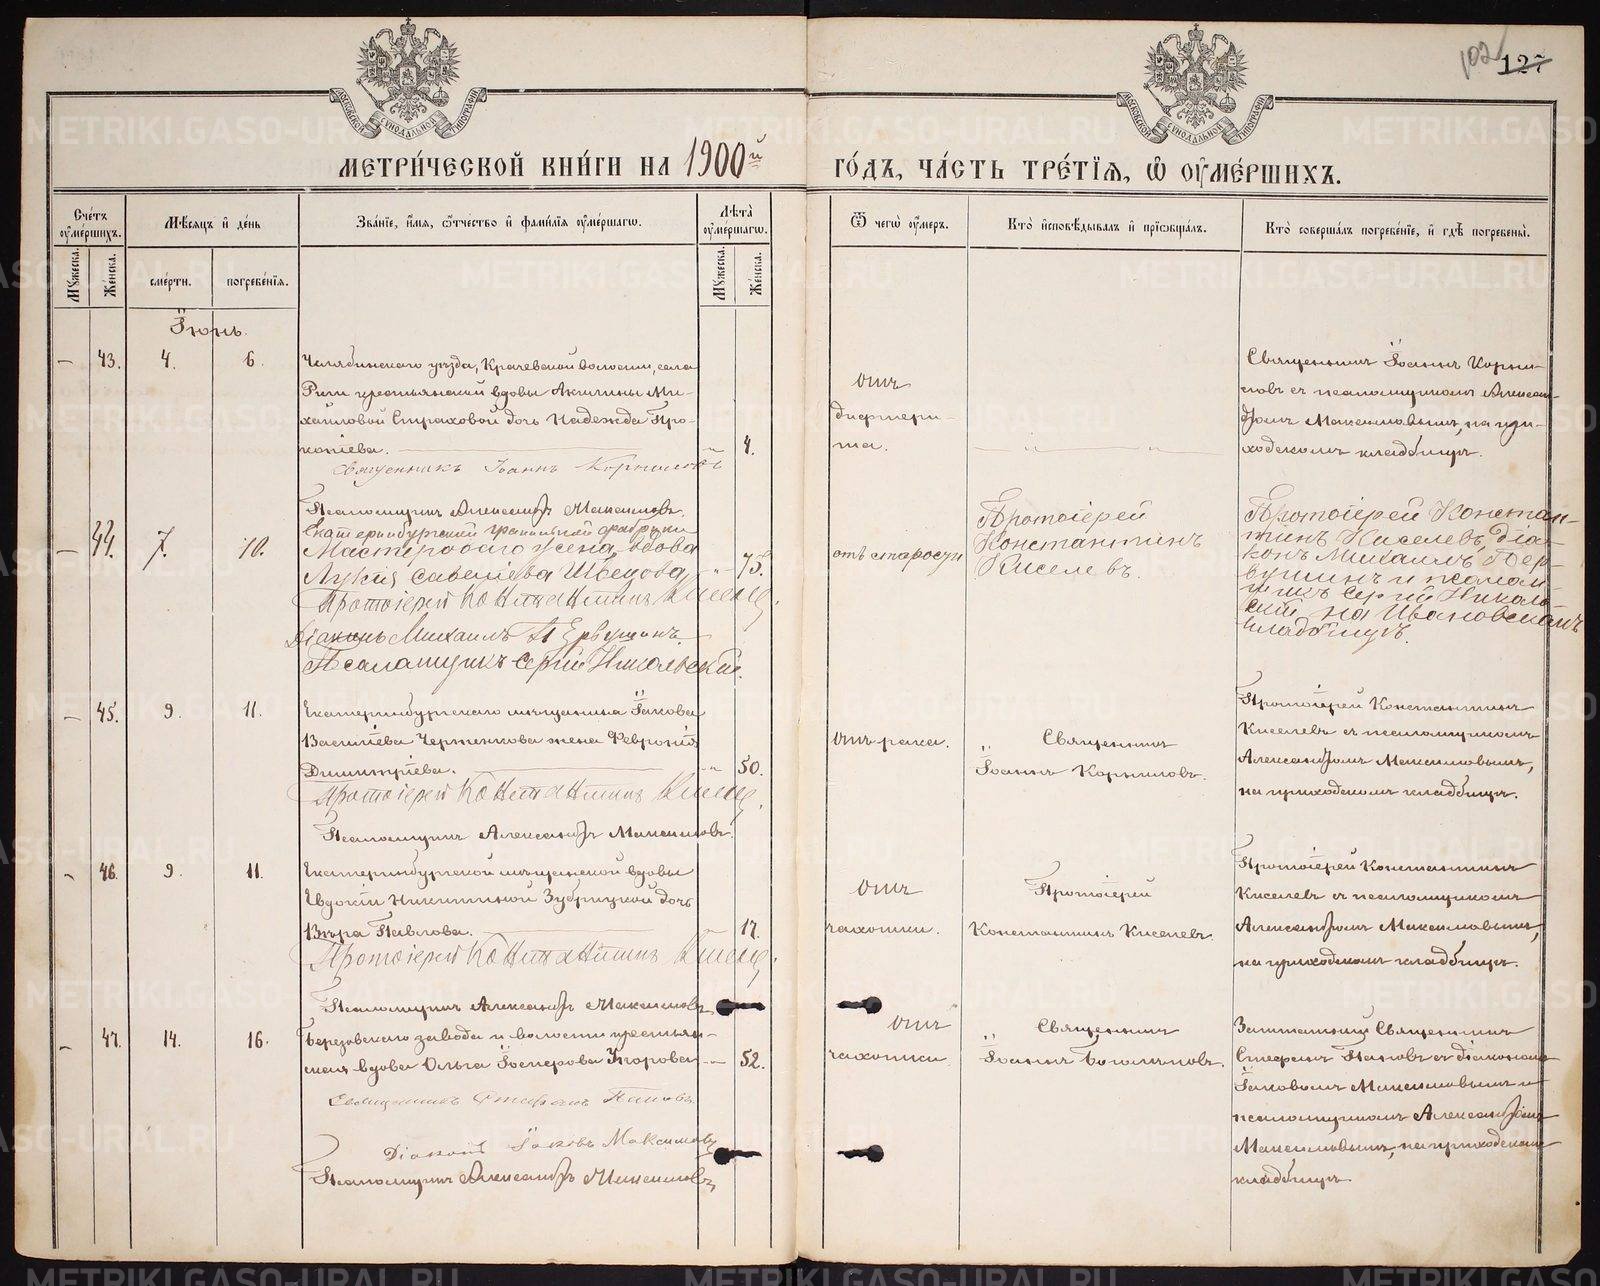 102
127
МОСКОВСКОЙ СѴНОДАЛЬНОЙ ТИПОГРАФІИ
МОСКОВСКОЙ СѴНОДАЛЬНОЙ ТИПОГРАФІИ
МЕТРИ́ЧЕСКОЙ КНИ́ГИ НА 1900й ГО́ДЪ, ЧА́СТЬ ТРЕ́ТІѦ, Ѡ ОУМЕ́РШИХЪ.
Сче́тъ оуме́ршихъ.
Мѣ́сяцъ и де́нь
Зва́ніе, и́мя, ѻ́тчество и фами́лія оуме́ршагѡ.
Лѣ́та оуме́ршагѡ.
Ѿ чегѡ̀ оу́меръ.
Кто̀ исповѣ́дывалъ и прїѡбща́лъ.
Кто̀ соверша́лъ погребе́ніе, и гдѣ̀ погребены̀.
Му́жеска.
Же́нска.
сме́рти.
погребе́нія.
Му́жеска.
Же́нска.
Іюнь.
— 43. 4. 6.
Челябинскаго уѣзда, Крачевской волости, села
крестьянской вдовы Акилины Ми-
хайловой Страховой дочь Надежда Про-
копіева. " 4.
Священникъ Іоаннъ Корниловъ
Псаломщикъ Александръ Максимовъ.
Отъ
дифтери-
та.
— " — " —
Священникъ Іоаннъ Корни-
ловъ съ псаломщикомъ Алексан-
дромъ Максимовымъ, на при-
ходскомъ кладбищѣ.
— 44. 7. 10.
Екатеринбургской гранильной фабрики
Мастероваго жена, вдова
Лукія Савеліева Швецова — " — 75.
Протоіерей Константинъ Киселевъ.
Діаконъ Михаилъ Первушинъ
Псаломщикъ Сергій Никольскій.
отъ старости
Протоіерей
Константинъ
Киселевъ.
Протоіерей Констан-
тинъ Киселевъ, діа-
конъ Михаилъ Пер-
вушинъ и псалом-
щикъ Сергій Николь-
скій, на Ивановскомъ
кладбищѣ.
— 45. 9. 11.
Екатеринбургскаго мѣщанина Іакова
Васильева жена Февронія
Димитріева. — " 50.
Протоіерей Константинъ Киселевъ.
Псаломщикъ Александръ Максимовъ.
Отъ рака.
Священникъ
Іоаннъ Корниловъ.
Протоіерей Константинъ
Киселевъ съ псаломщикомъ
Александромъ Максимовымъ,
на приходскомъ кладбищѣ.
- 46. 9. 11.
Екатеринбургской мѣщанской вдовы
Евдокіи Никитиной Зубрицкой дочь
Вѣра Павлова. 17.
Протоіерей Константинъ Киселевъ
Псаломщикъ Александръ Максимовъ
Отъ
чахотки.
Протоіерей
Константинъ Киселевъ.
Протоіерей Константинъ
Киселевъ съ псаломщикомъ
Александромъ Максимовымъ,
на приходскомъ кладбищѣ.
- 47. 14. 16.
Березовскаго завода и волости крестьян-
ская вдова Ольга Егорова — 52.
Священникъ Стефанъ Поповъ
Діаконъ Іаковъ Максимовъ
Псаломщикъ Александръ Максимовъ
Отъ
чахотки
Священникъ
Іоаннъ Боголюбовъ.
Заштатный Священникъ
Стефанъ Поповъ съ діакономъ
Іаковомъ Максимовымъ и
псаломщикомъ Александромъ
Максимовымъ, на приходскомъ
кладбищѣ.
METRIKI.GASO-URAL.RU